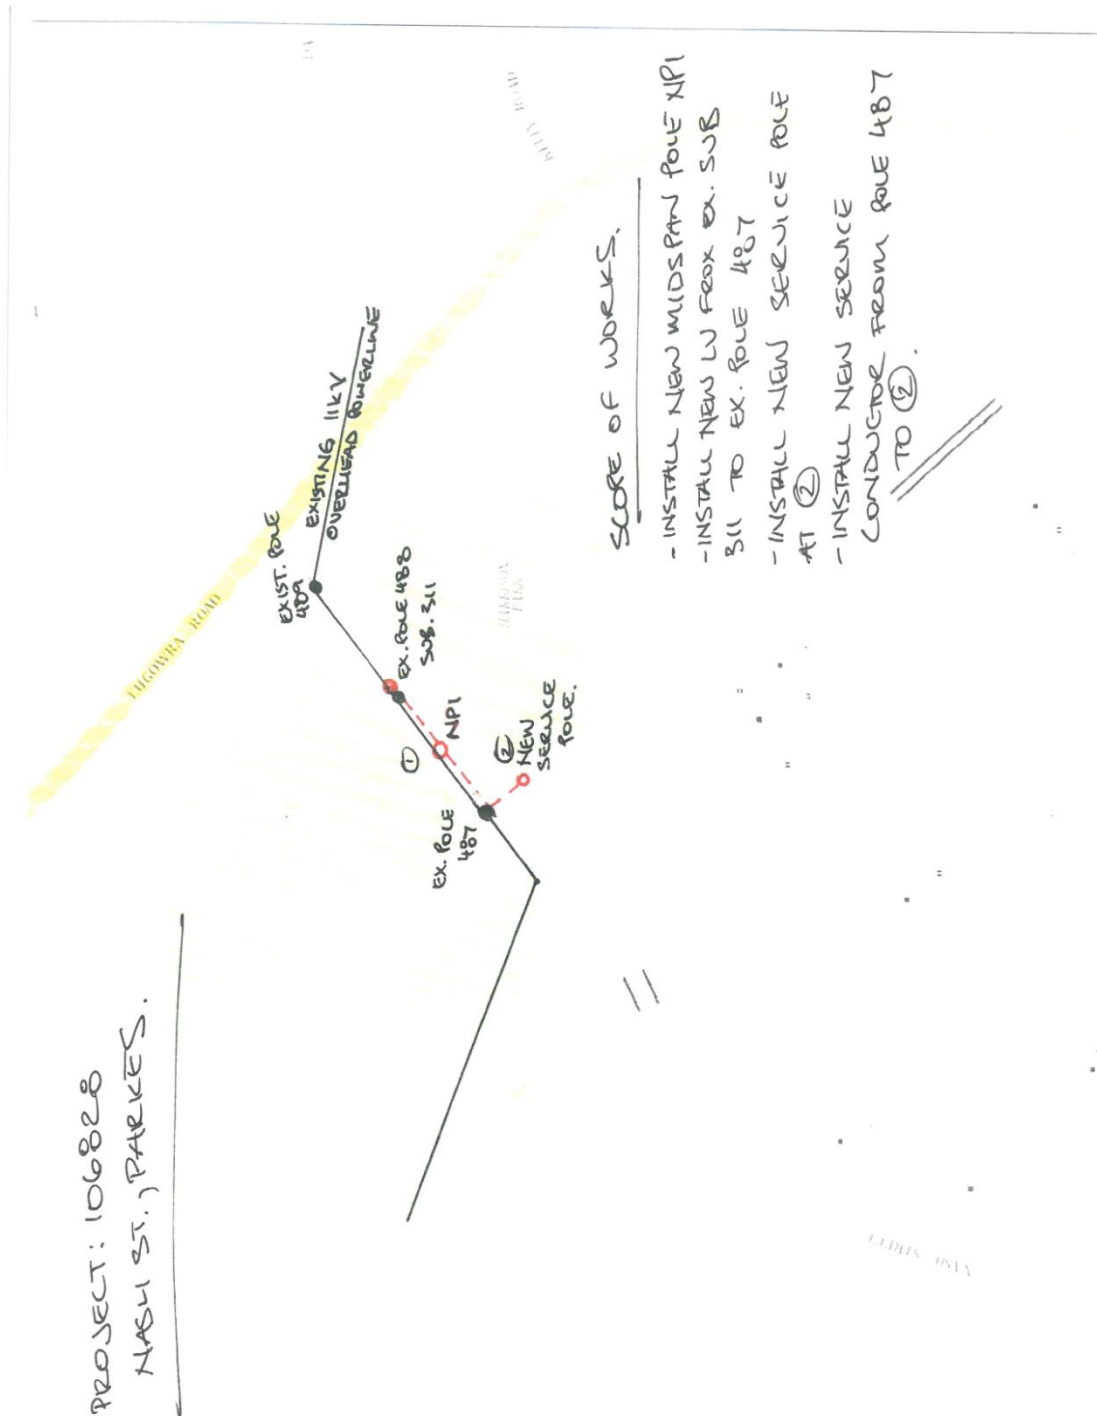 PROJECT: 106828
NASH ST., PARKES.
EUGOWRA ROAD
EXIST. POLE
489
EXISTING 11kV
OVERHEAD POWERLINE
EX. POLE 488
SUB. 311
①
NP1
EX. POLE
487
②
NEW
SERVICE
POLE.
HARRISON
PARK
SCOPE OF WORKS.
- INSTALL NEW MIDSPAN POLE NP1
- INSTALL NEW LV FROM EX. SUB
311 TO EX. POLE 487
- INSTALL NEW SERVICE POLE
AT ②
- INSTALL NEW SERVICE
CONDUCTOR FROM POLE 487
TO ②.
ROAD
NASH STREET